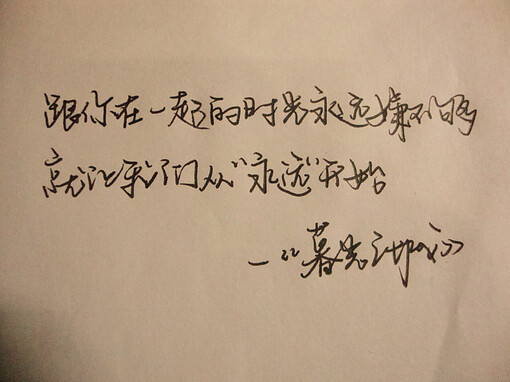 跟你在一起的时光永远嫌不够
就让我们从“永远”开始
—《暮光之城》